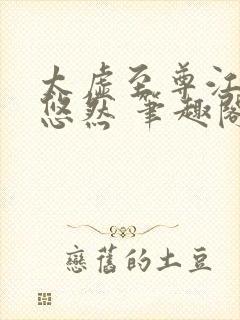 太虚至尊江
悠然 筆趣閣
戀舊的土豆